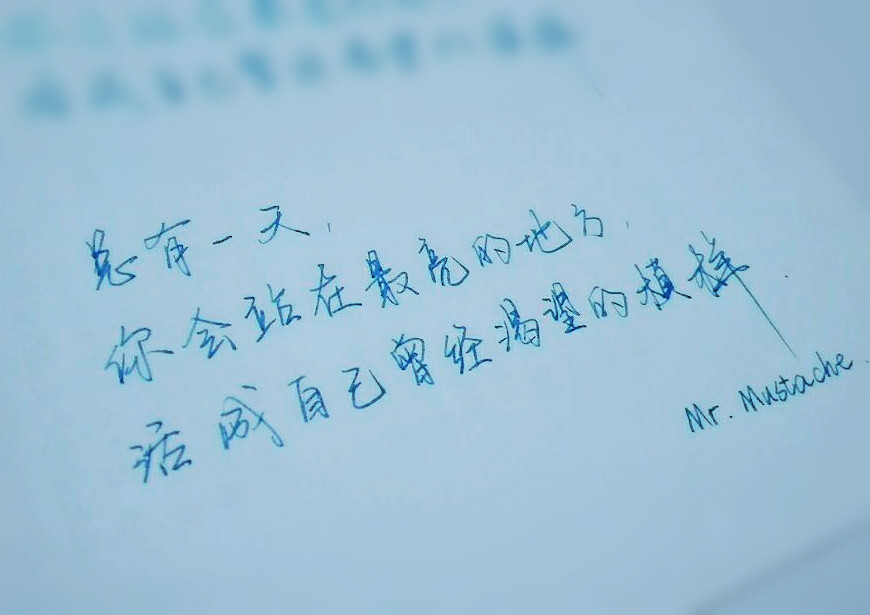 总有一天,
你会站在最亮的地方,
活成自己曾经渴望的模样.
Mr. Mustache.